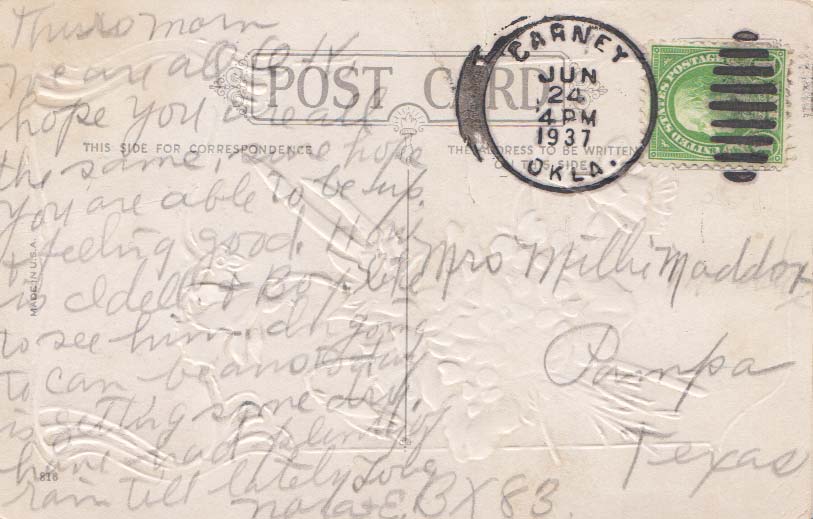 Thurs morn
we are all O.K.
hope you are all
the same, sure hope
you are able to be up.
& feeling good. How
is Idell & Boy. like
to see him. am going
to can beans today
is getting some dry.
have had plenty of
rain till lately love
Nola E. BX 83.
POST CARD
THIS SIDE FOR CORRESPONDENCE
THE ADDRESS TO BE WRITTEN
ON THIS SIDE
CARNEY
JUN
24
4 PM
1937
OKLA.
UNITED STATES POSTAGE
Mrs Milli Maddox
Pampa
Texas
MADE IN U.S.A.
818